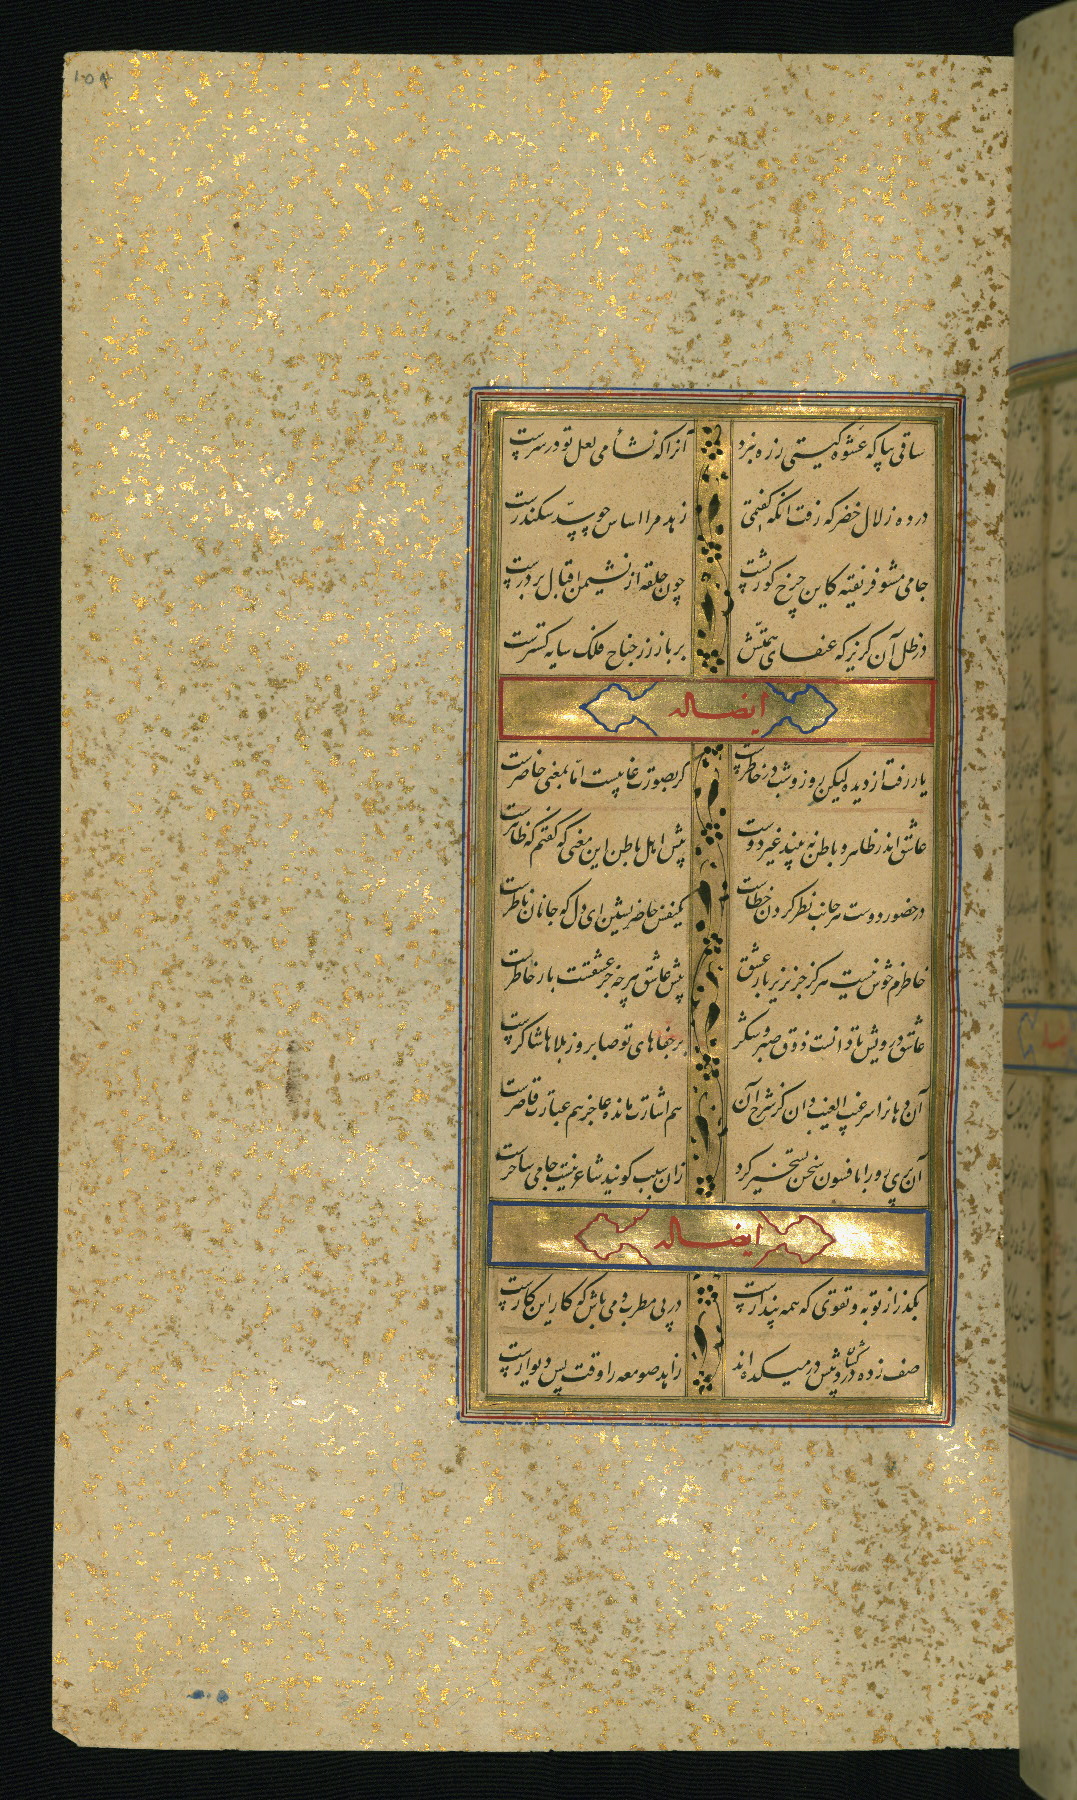 ساقی بیا که عشوه گیتی ز ره نبرد آنرا که نشأ می لعل تو در سرست
در ده زلال خضر که رفت آنکه گفتمی زهد مرا اساس چو سد سکندرست
جامی مشو فریفته کاین چرخ گوژپشت چون حلقه از نشیمن اقبال بر درست
در ظل آن گریز که عنقای همتش بر باز زر جناح فلک سایه گسترست
ایضا له
یار رفت از دیده لیکن روز و شب در خاطرست گر بصورت غایبست اما بمعنی حاضرست
عاشق اندر ظاهر و باطن نبیند غیر دوست پیش اهل باطن این معنی که گفتم ظاهرست
در حضور دوست هر جانب نظر کردن خطاست یکنفس حاضر نشین ای دل که جانان ناظرست
خاطرم خوش نیست هرگز جز بزیر بار عشق پیش عاشق هر چه جز عشقست بار خاطرست
عاشق درویش با تو انست ذوق صبر و شکر بر جفاهای تو صابر وز بلاها شاکرست
آن دهانرا سر غیب الغیب دان کز شرح آن هم اشارت مانده عاجز هم عبارت قاصرست
آن پری رو را بافسون سخن تسخیر کرد زان سبب گویند شاعر نیست جامی ساحرست
ایضا له
بگذر از توبه و تقوی که همه پندارست در پی مطرب و می باش که کار این کارست
صف زده درد کشان پیش در میکده اند زاهد صومعه را وقت پس دیوارست